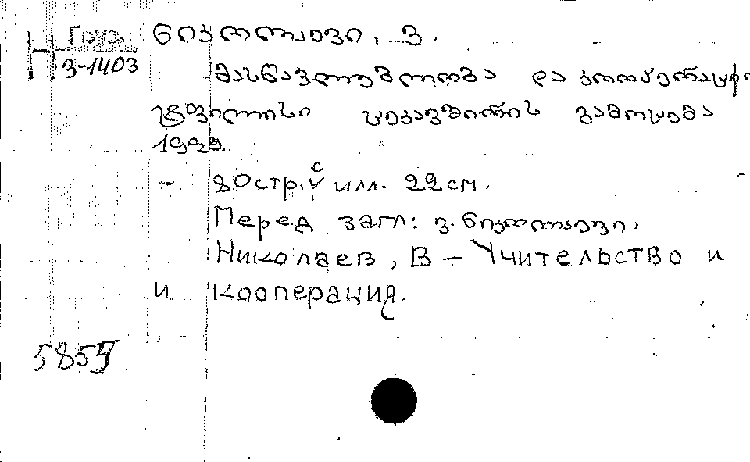 Груз. ნიკოლაევი, ვ.
Н 3-1403
მასწავლებლობა და კოოპერაცი
ტფილისი ცეკავშირის გამოცემა
192
- 80 стр. с илл. 22 см.
Перед загл: ვ. ნიკოლაევი.
Николаев, В - Учительство и
и кооперация.
5855